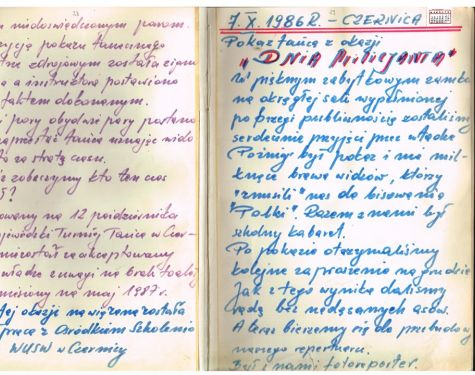 niedoświadczonym parom.
pokazu tanecznego
zdrojowym została
a instruktora postawiono
faktem dokonanym.
pory obydwie pary
tańca uznając
za stratę czasu.
zobaczymy kto ten czas
?
na 12 października
Turniej Tańca w Czer-
został zaakceptowany
władze z uwagi na brak
na maj 1987 r.
tej okazji nawiązana została
z Ośrodkiem Szkolenia
WUSW w Czernicy
7.X.1986 R. – CZERNICA
Pokaz tańca z okazji
"DNIA MILICJANTA"
W pięknym zabytkowym zamku
na okrągłej sali wypełnionej
po brzegi publicznością zostaliśmy
serdecznie przyjęci przez władze
Później był pokaz i nie mil-
knące brawa widzów, którzy
"zmusili" nas do bisowania
"Polki". Razem z nami był
szkolny kabaret.
Po pokazie otrzymaliśmy
kolejne zaproszenie na grudzień
Jak z tego wynika daliśmy
radę bez nadąsanych asów.
A teraz bierzemy się do przebudowy
naszego repertuaru.
Był z nami fotoreporter.